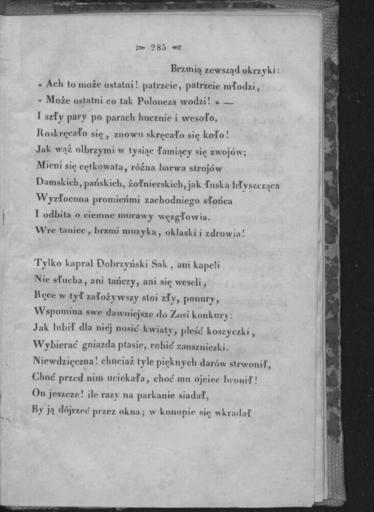 285
Brzmią zewsząd okrzyki:
« Ach to może ostatni! patrzcie, patrzcie młodzi,
« Może ostatni co tak Poloneza wodzi! » —
I szły pary po parach hucznie i wesoło,
Roskręcało się, znowu skręcało się koło!
Jak wąż olbrzymi w tysiąc łamiący się zwojów;
Mieni się cętkowata, różna barwa strojów
Damskich, pańskich, żołnierskich, jak łuska błyszcząca
Wyzłocona promieńmi zachodniego słońca
I odbita o ciemne murawy wezgłowia.
Wre taniec, brzmi muzyka, oklaski i zdrowia!
Tylko kapral Dobrzyński Sak, ani kapeli
Nie słucha, ani tańczy, ani się weseli,
Ręce w tył założywszy stoi zły, ponury,
Wspomina swe dawniejsze do Zosi konkury:
Jak lubił dla niéj nosić kwiaty, pleść koszyczki,
Wybierać gniazda ptasie, robić zauszniczki.
Niewdzięczna! chociaż tyle pięknych darów strwonił,
Choć przed nim uciekała, choć mu ojciec bronił!
On jeszcze! ile razy na parkanie siadał,
By ją dójrzeć przez okna; w konopie się wkradał